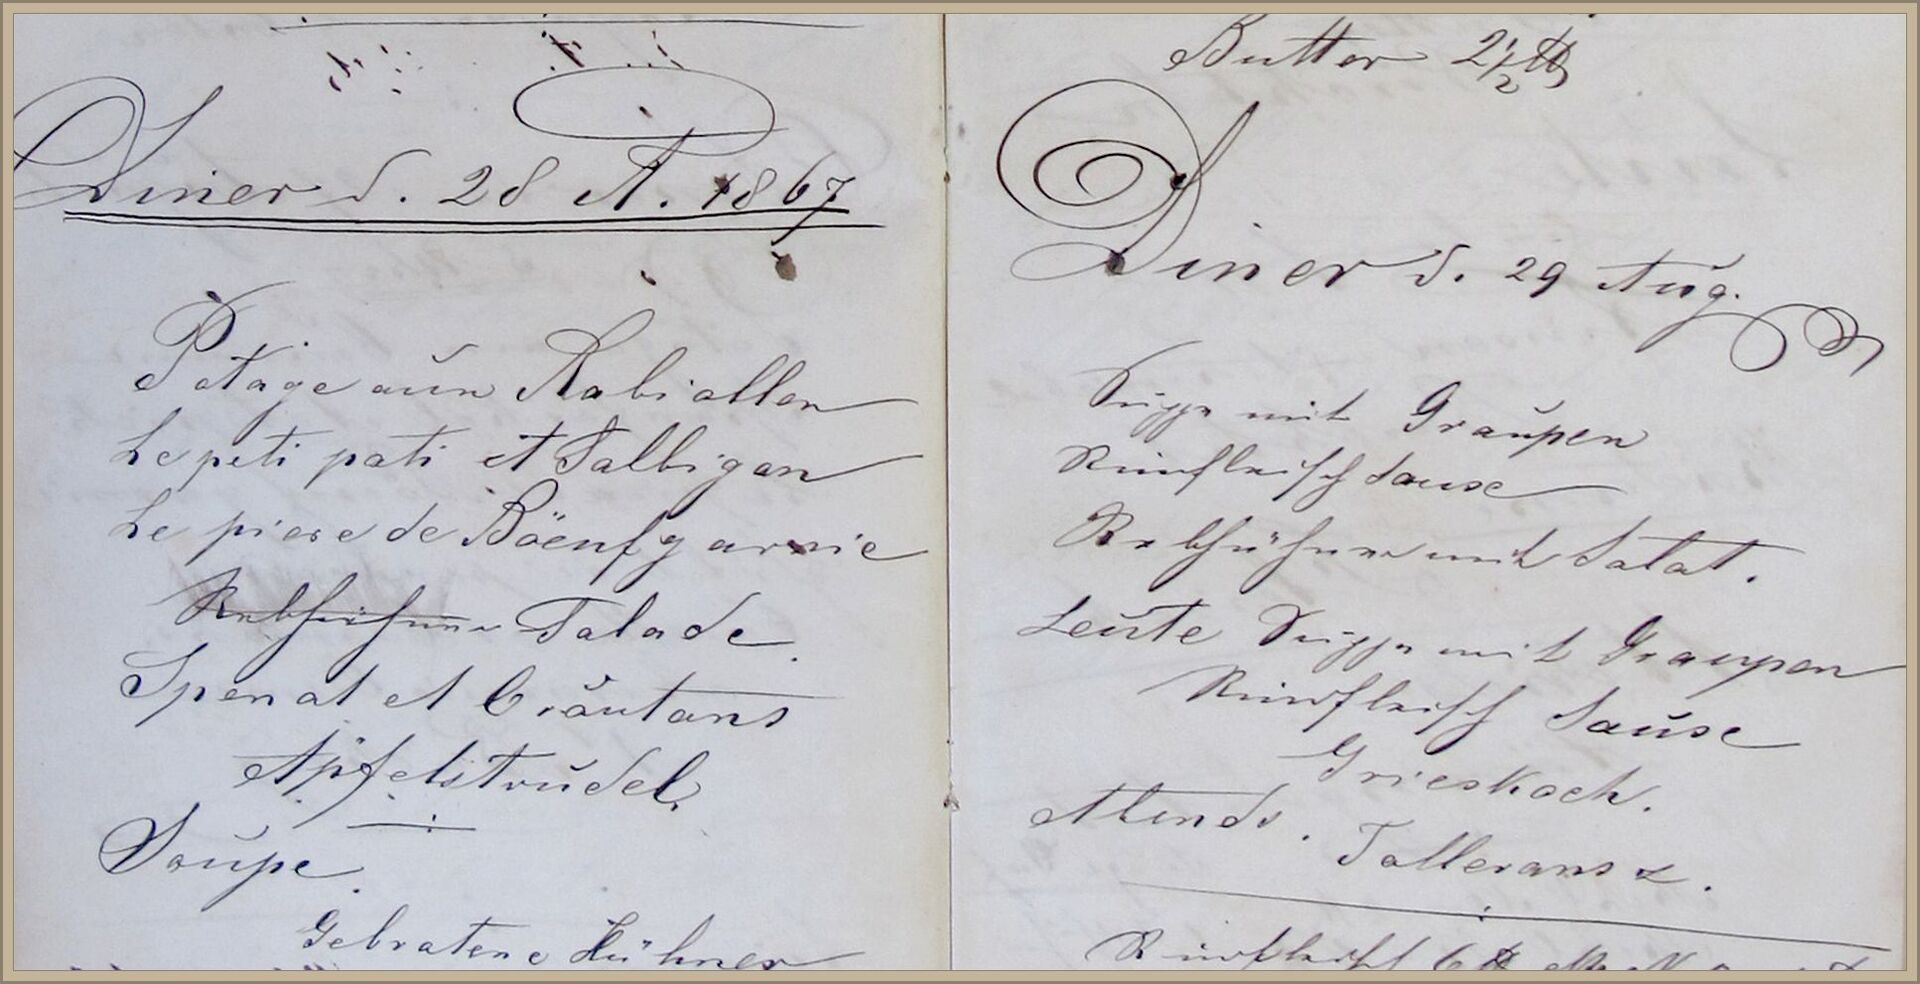 Diner d. 28 A. 1867
Potage aun Rabiollen
Le peti pati et Salbigan
Le piese de Böenf garnie
Rebhühner Salade.
Spenat et Croutans
Apfelstrudel.
Soupe.
Gebratene Hühner
Butter 2 1/2 ℔
Diner d. 29 Aug.
Suppe mit Graupen
Rindfleisch Sause
Rebhühner mit Salat.
Leute Suppe mit Graupen
Rindfleisch Sause
Grieskoch.
Abends. Tolleransz.
Rindfleisch 6 ℔